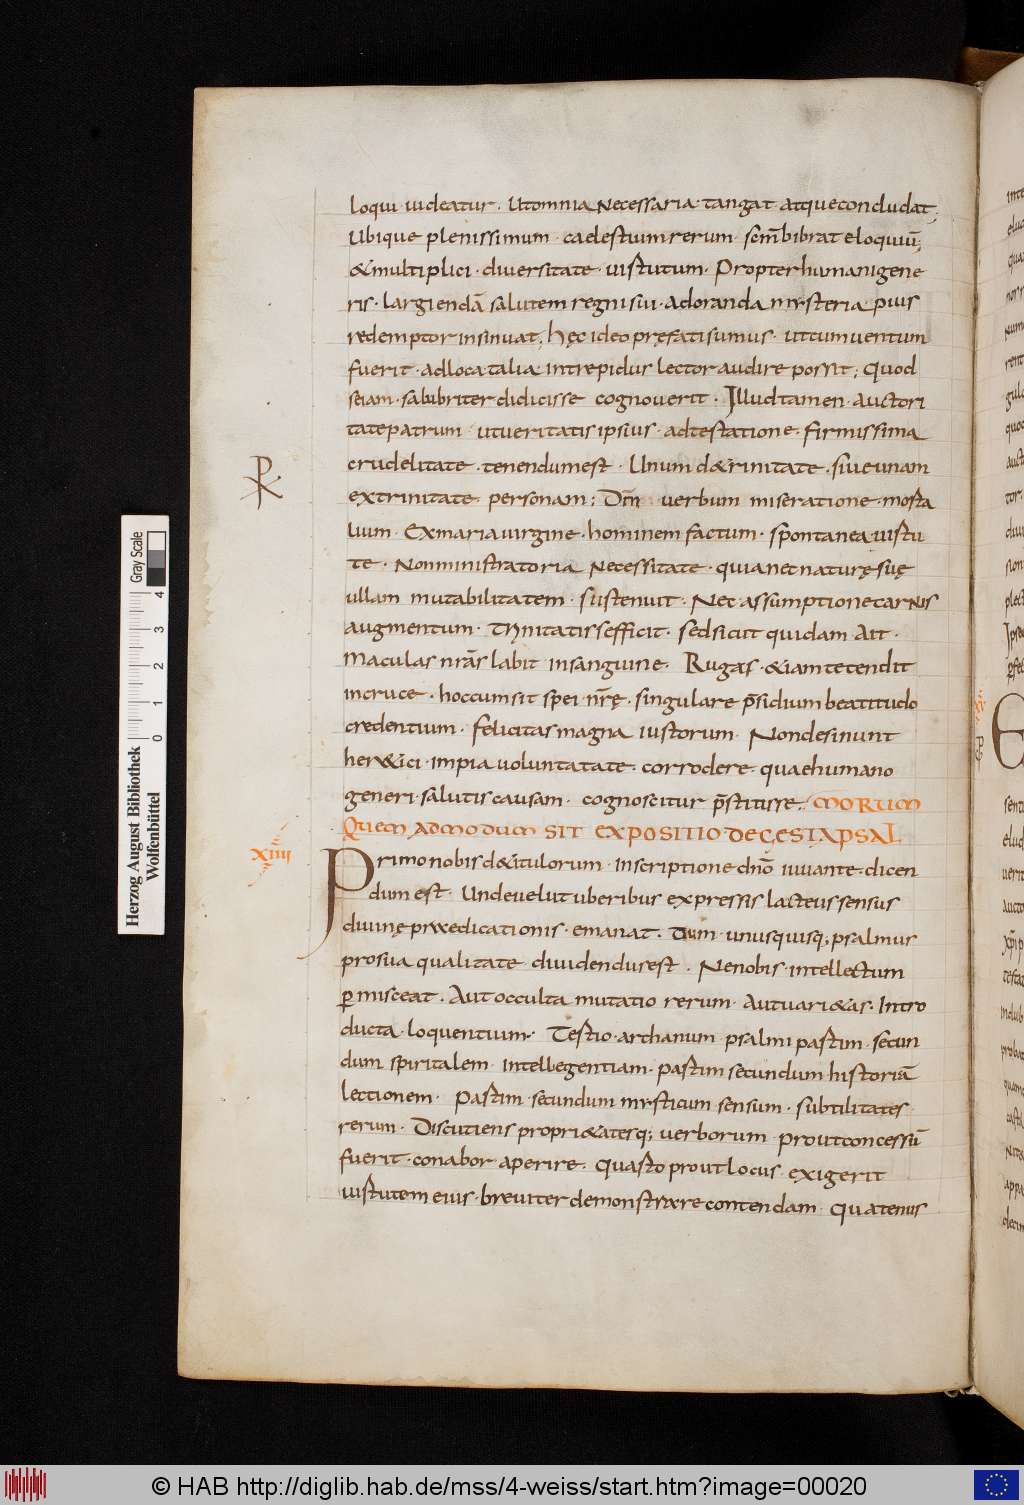 loqui uideatur. Utomnia Necessaria tangat atqueconcludat;
Ubique plenissimum · caelestiumrerum · semp̄bibrat eloquiū;
&multiplici · diuersitate · uistutum · Propterhumanigene
ris · largiendā salutem regnisui · adoranda mysteria pius
redemptor insinuat; hęc ideo pręfatisumus · utcumuentum
fuerit · adloca talia intrepidus lector audire possit; Quod
seiam · salubriter didicisse cognouerit · Illudtamen · auctori
tatepatrum · utueritatis ipsius · adtestatione · firmissima
crudelitate · tenendumest · Unum d&rinitate · siueunam
extrinitate · personam; Dn̄m uerbum miseratione · mosta
lium · Exmaria uirgine · hominem factum · spontanea uistu
te · Nonministratoria Necessitate · quianecnaturę suę
ullam mutabilitatem · sustenuit · Nec assumptionecarNis
augmentum · Trinitatis efficit · sedsicut quidam Ait ·
Maculas nr̄as labit insanguine · Rugas · &iam te tendit
incruce · hoccumsit spei nr̄ę · singulare p̄sidium beatitudo
credentium · felicitas magna iustorum · Nondesinunt
her&ici · impia uoluntatate · corrodere · quaehumano
generi · salutis causam · cognoscitur p̄stitisse. MORUM
XIIII
QUEM ADMODUM SIT EXPOSITIO DEGESTA PSAL
Primo nobis d&itulorum · inscriptione dn̄o iuuante · dicen
dum est Undeuelut uberibus expressis lacteus sensus
diuinę prædicationis · emanat. Dum · unusquisq; psalmus
prosua qualitate · diuidendusest · Nenobis · intellectum
ꝑmisceat. Aut occulta mutatio rerum · Autuari&as · Intro
ducta · loquentium · Testio · archanum · psalmi pastim · secun
dum spiritalem · intellegentiam · pastim secundum historiā
lectionem · Pastim · secundum mysticum sensum · subtilitates
rerum · Discutiens propri&atesq; uerborum · proutconcessū
fuerit · conabor aperire · Quasto prout locus exigerit
uistutem eius · breuiter demonstrare contendam · Quatenus
Gray Scale
4
3
2
1
0
Herzog August Bibliothek
Wolfenbüttel
© HAB http://diglib.hab.de/mss/4-weiss/start.htm?image=00020